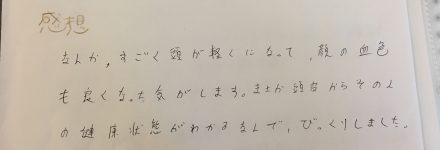 感想
なんか、すごく頭が軽くになって、顔の血色
も良くなった気がします。まさか頭皮からその人
の健康状態がわかるなんで、びっくりしました。